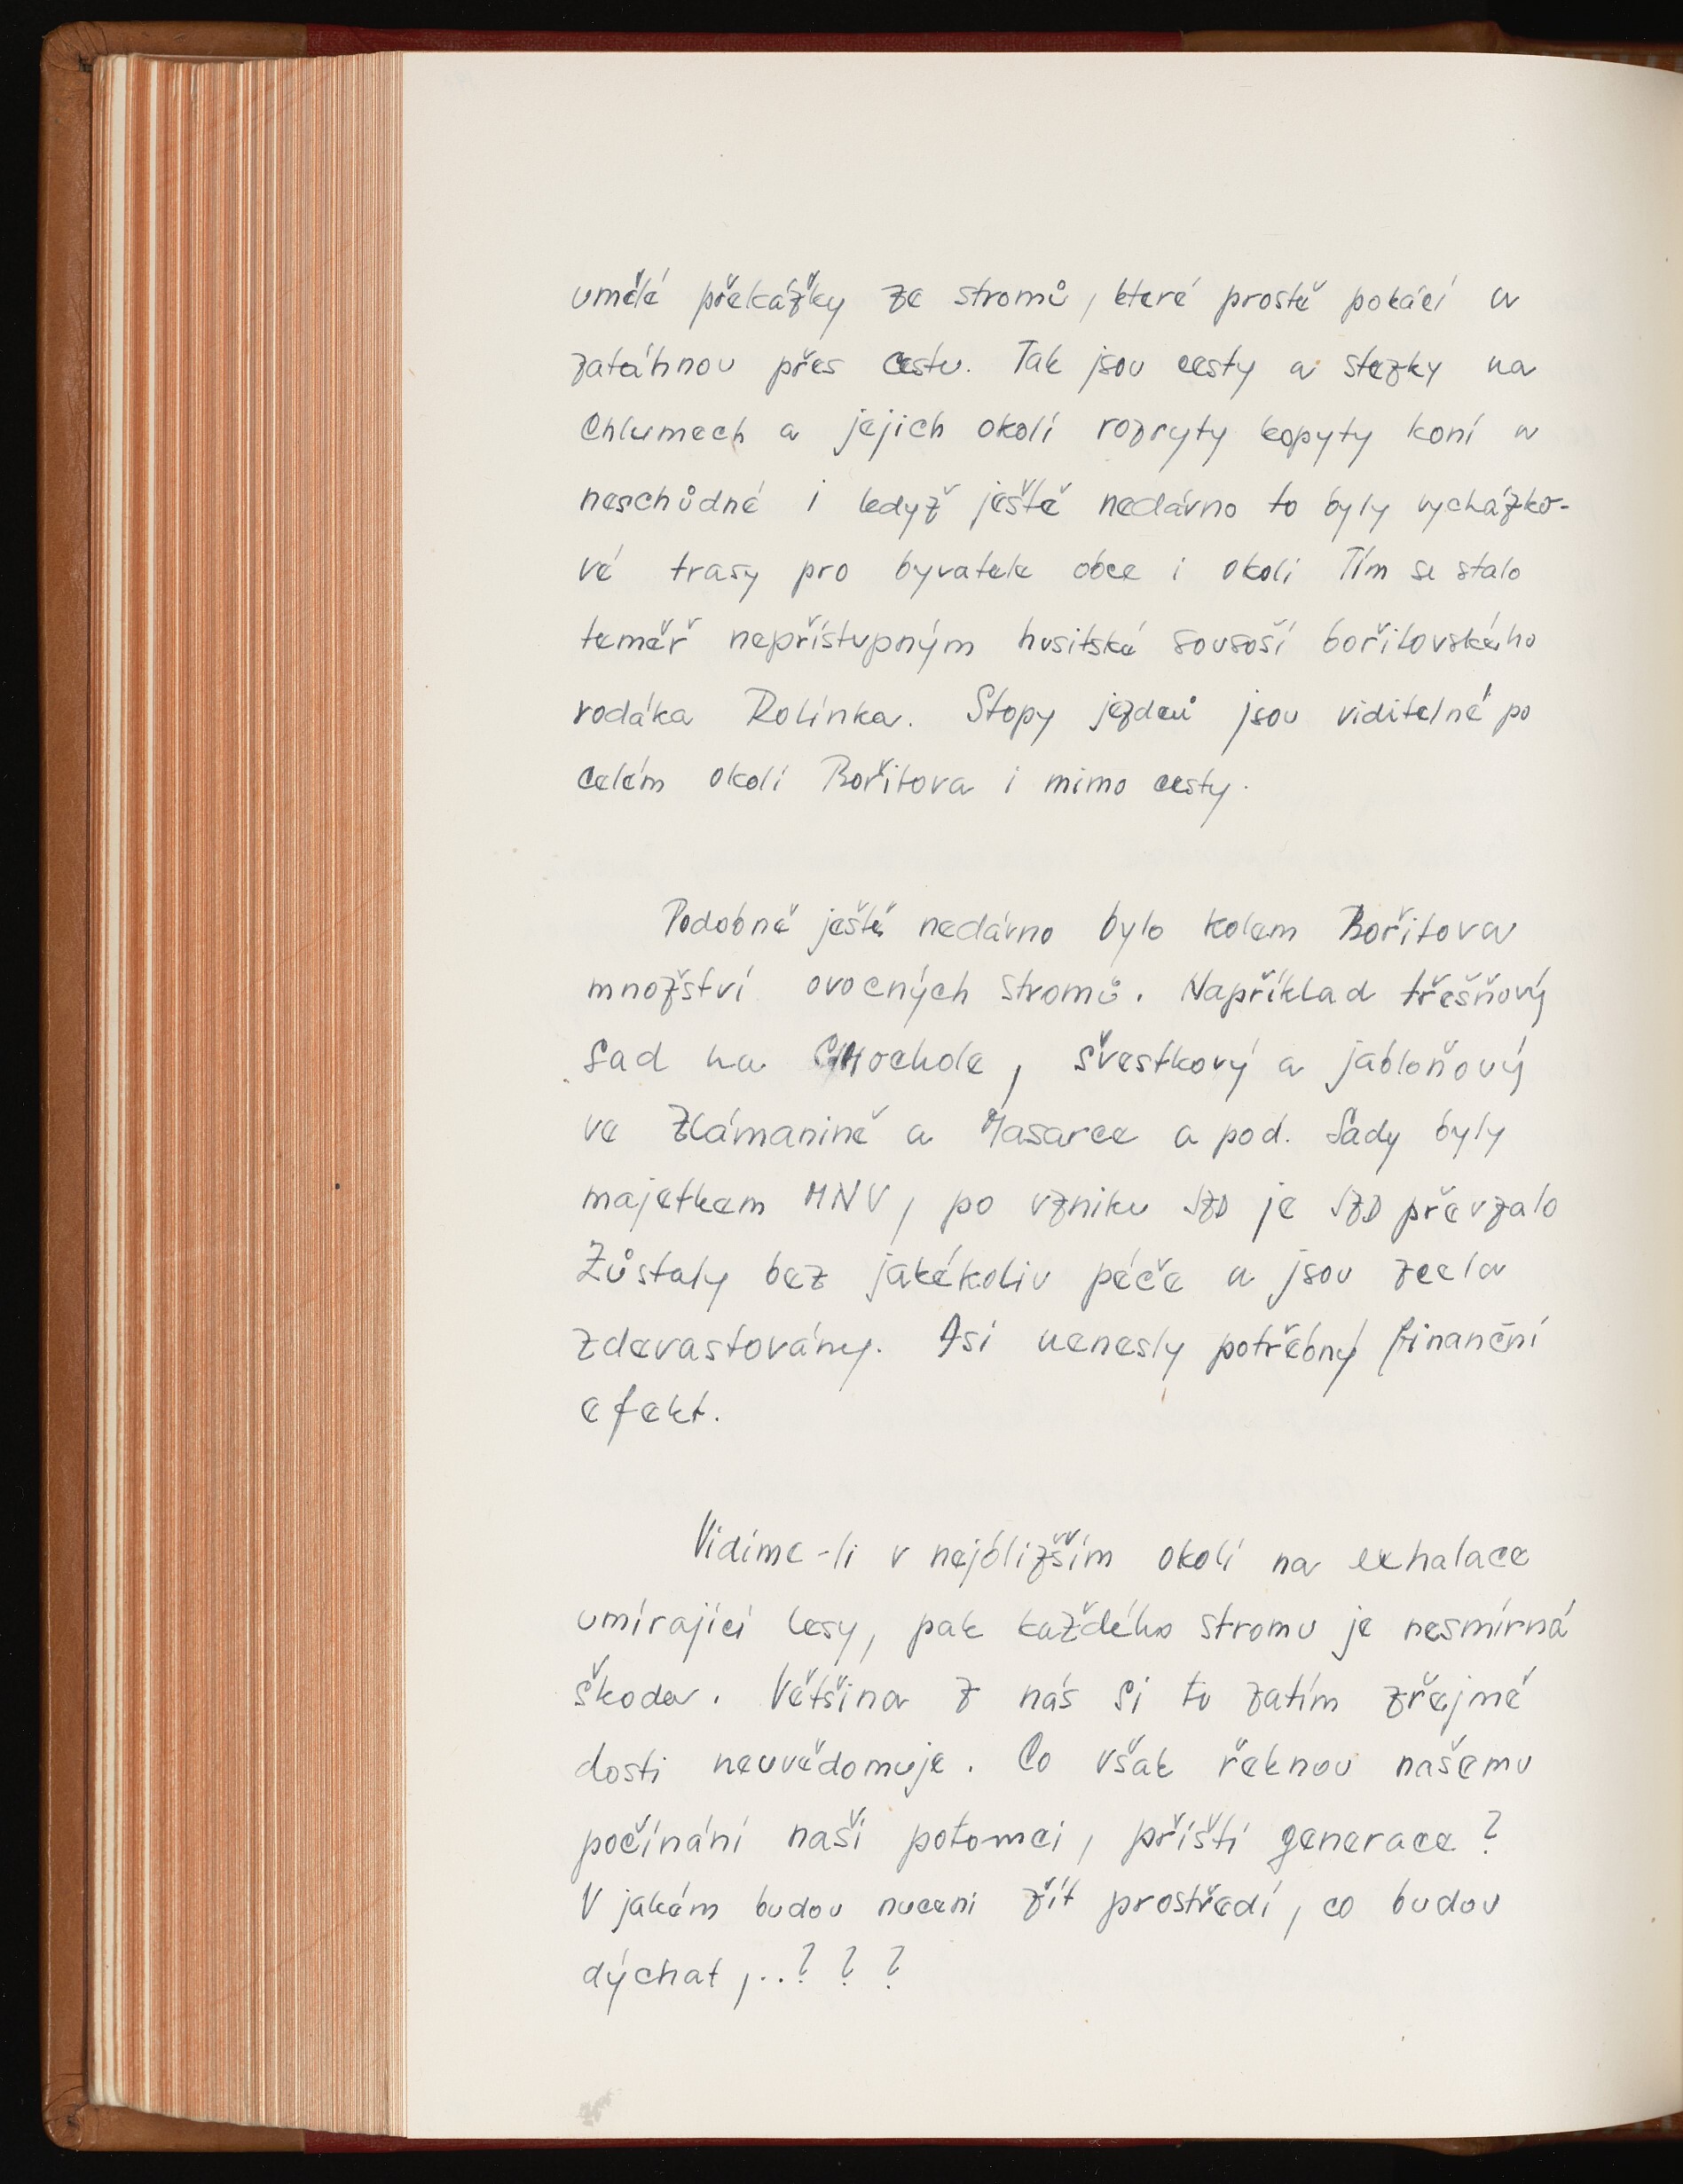 umělé překážky ze stromů, které prostě pokácí a
zatáhnou přes cestu. Tak jsou cesty a stezky na
Chlumech a jejich okolí rozryty kopyty koní a
neschůdné i když ještě nedávno to byly vycházko-
vé trasy pro byvatele obce i okolí Tím se stalo
teměř nepřístupným husitské sousoší bořitovského
rodáka Rolínka. Stopy jezdců jsou viditelné po
celém okolí Bořitova i mimo cesty.
Podobně ještě nedávno bylo kolem Bořitova
množství ovocných stromů. Například třešňový
sad na , švestkový a jabloňový
ve Zlámanině a Masarce a pod. Sady byly
majetkem MNV, po vzniku JZD je JZD převzalo
Zůstaly bez jakékoliv péče a jsou zcela
zdevastovány. Asi nenesly potřebný finanční
efekt.
Vidíme-li v nejbližším okolí na exhalace
umírající lesy, pak každého stromu je nesmírná
škoda. Většina z nás si to zatím zřejmě
dosti neuvědomuje. Co však řeknou našemu
počínání naši potomci, příští generace?
V jakém budou nuceni žít prostředí, co budou
dýchat,..? ? ?